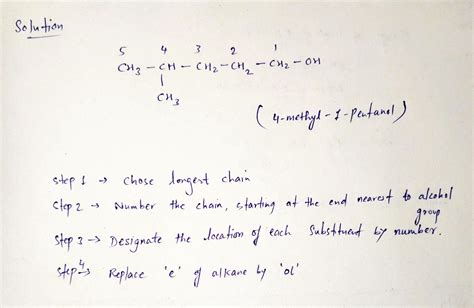 Solution
5 4 3 2 1
CH3 — CH — CH2 — CH2 — CH2 — OH
|
CH3
(4-methyl-1-Pentanol)
step 1 → chose longest chain
Step 2 → Number the chain, starting at the end nearest to alcohol
group
Step 3 → Designate the location of each Substituent by number.
step 4 → Replace 'e' of alkane by 'ol'